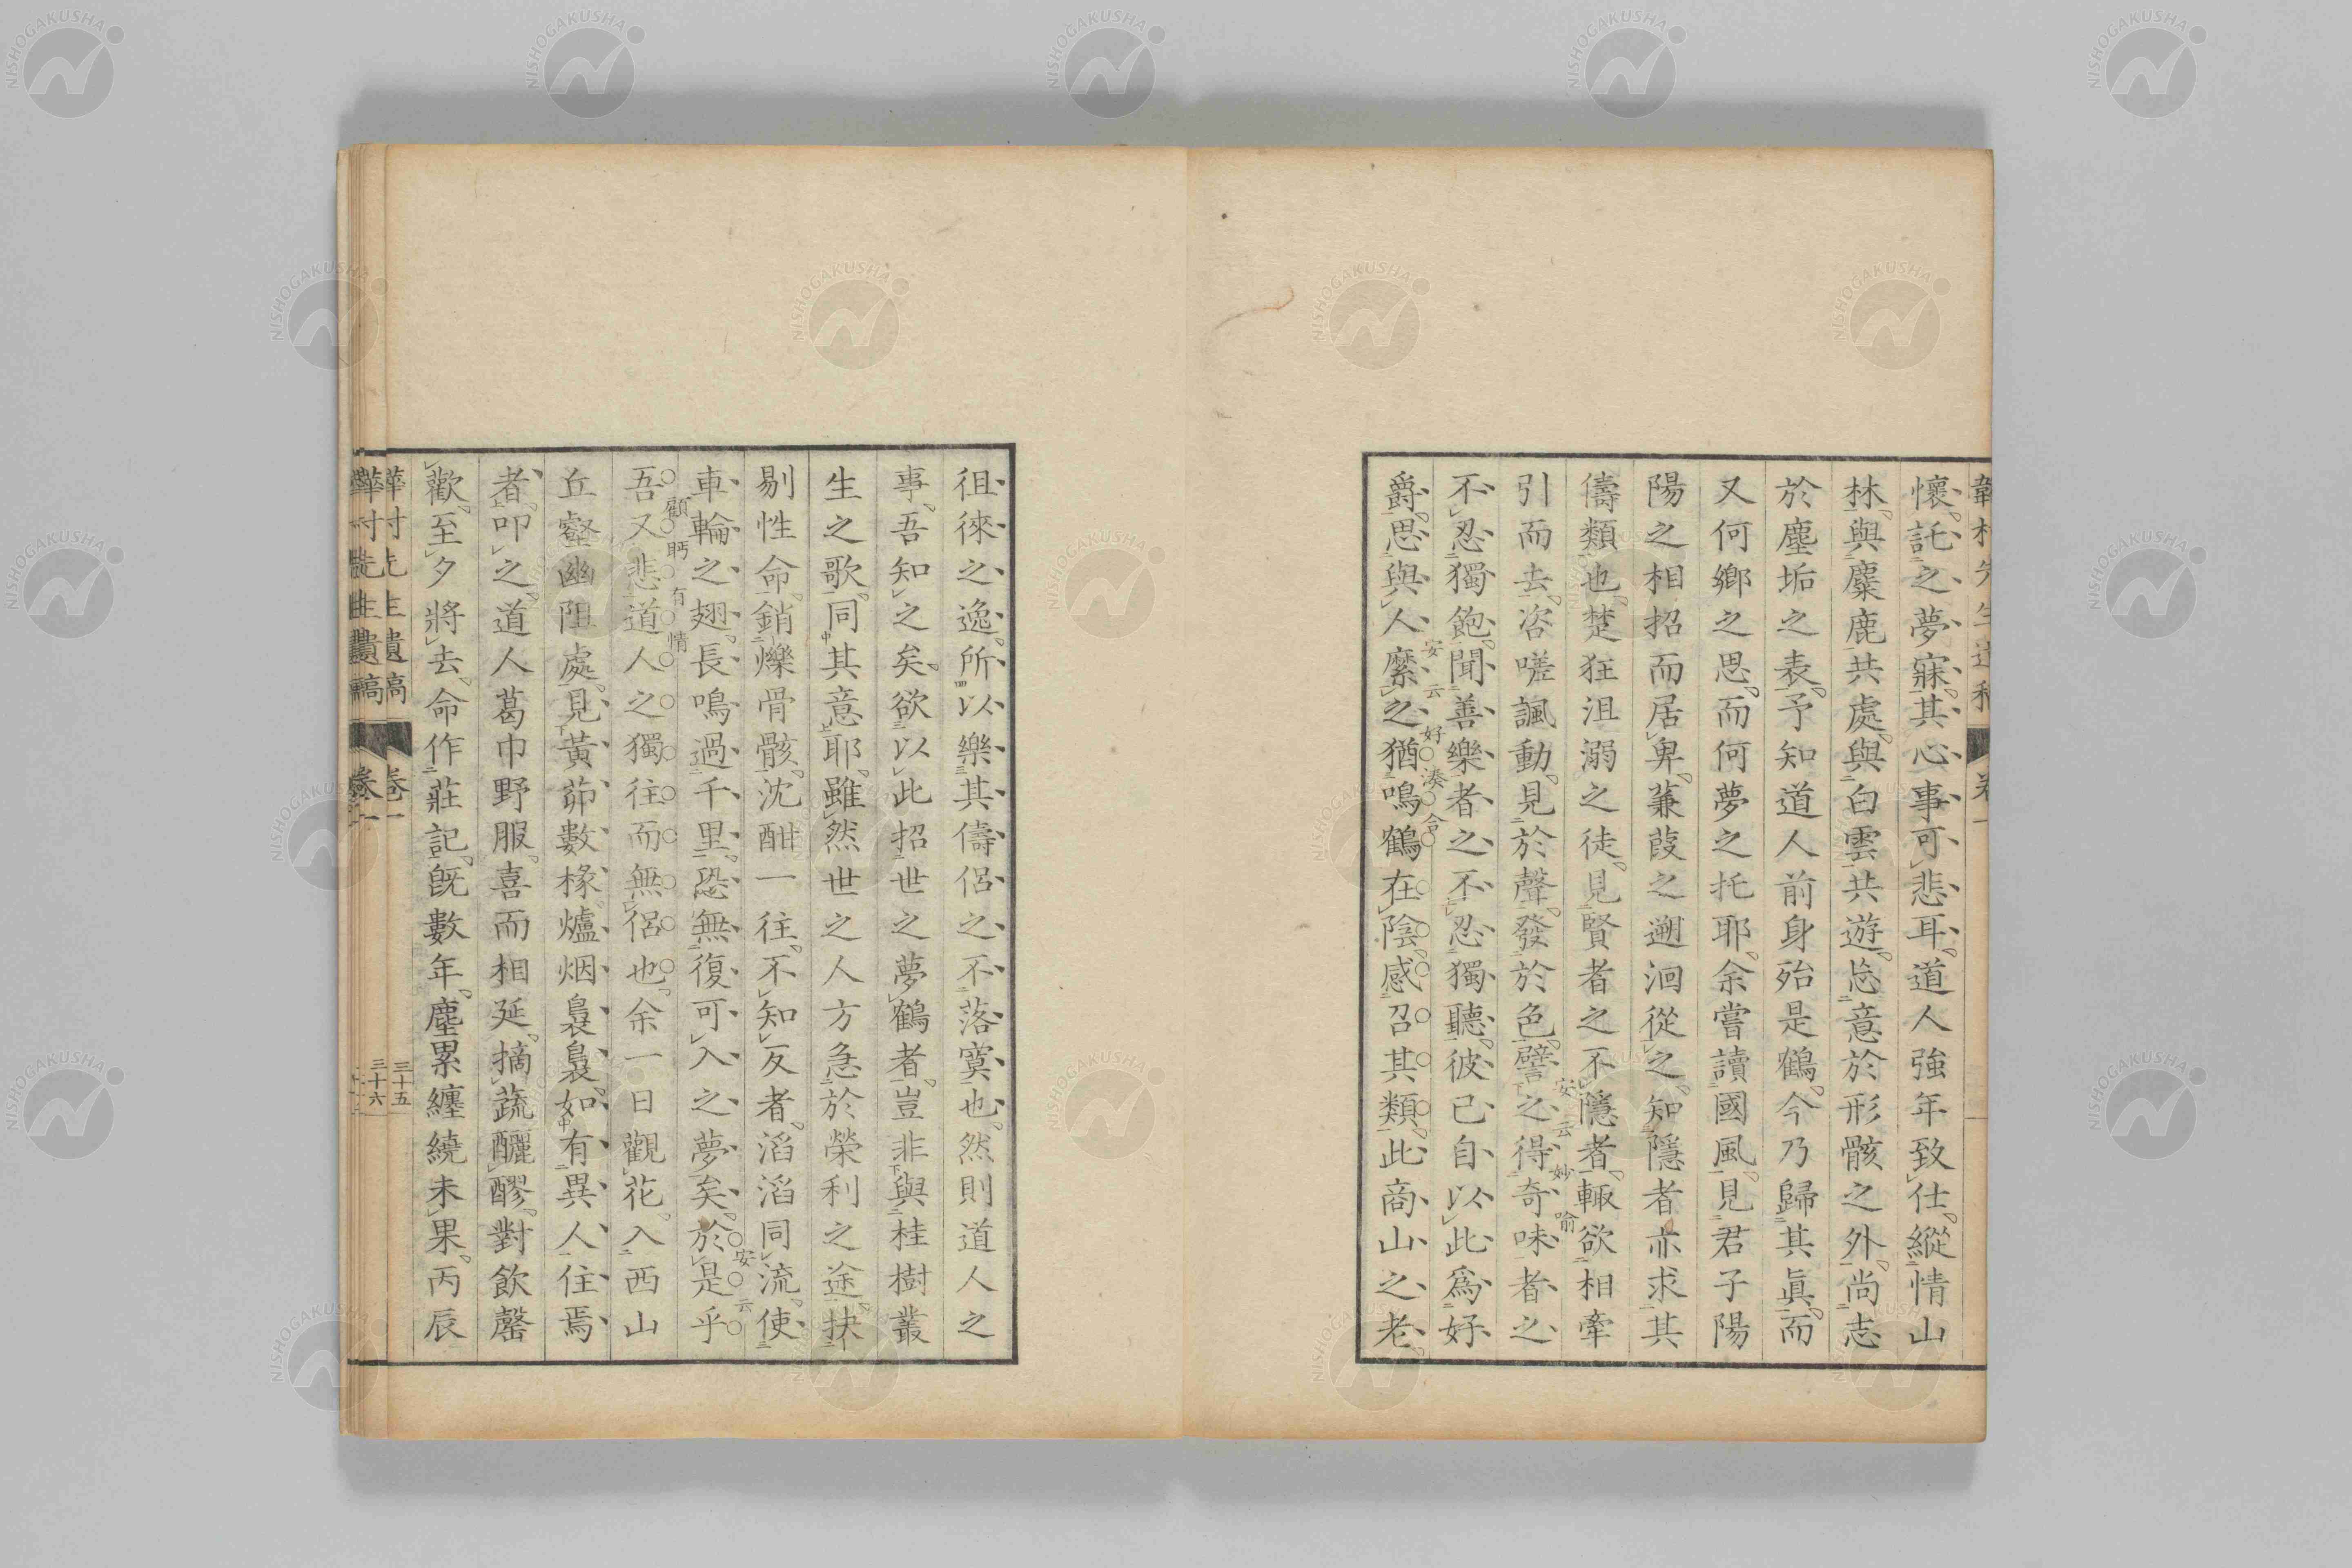 懷託之夢寐其心事可悲耳道人強年致仕縱情山
林與麋鹿共處與白雲共遊忘意於形骸之外尚志
於塵垢之表予知道人前身殆是鶴今乃歸其眞而
又何鄉之思而何夢之托耶余嘗讀國風見君子陽
陽之相招而居卑蒹葭之遡洄從之知隱者亦求其
儔類也楚狂沮溺之徒見賢者之不隱者輙欲相牽
引而去咨嗟諷動見於聲發於色譬之得奇味者之
安云妙喻
不忍獨飽聞善樂者之不忍獨聽彼已自以此爲好
安云好湊合
爵思與人縻之猶鳴鶴在陰感召其類此商山之老
徂徠之逸所以樂其儔侶之不落寞也然則道人之
事吾知之矣欲以此招世之夢鶴者豈非與桂樹叢
生之歌同其意耶雖然世之人方急於榮利之途抉
剔性命銷爍骨骸沈酣一往不知反者滔滔同流使
車輪之翅長鳴過千里恐無復可入之夢矣於是乎
安云顧眄有情
吾又悲道人之獨往而無侶也余一日觀花入西山
丘壑幽阻處見黃茆數椽爐烟裊裊如有異人住焉
者叩之道人葛巾野服喜而相延摘蔬釃醪對飲罄
歡至夕將去命作莊記旣數年塵累纏繞未果丙辰
卷一
三十五
三十六
NISHOGAKUSHA